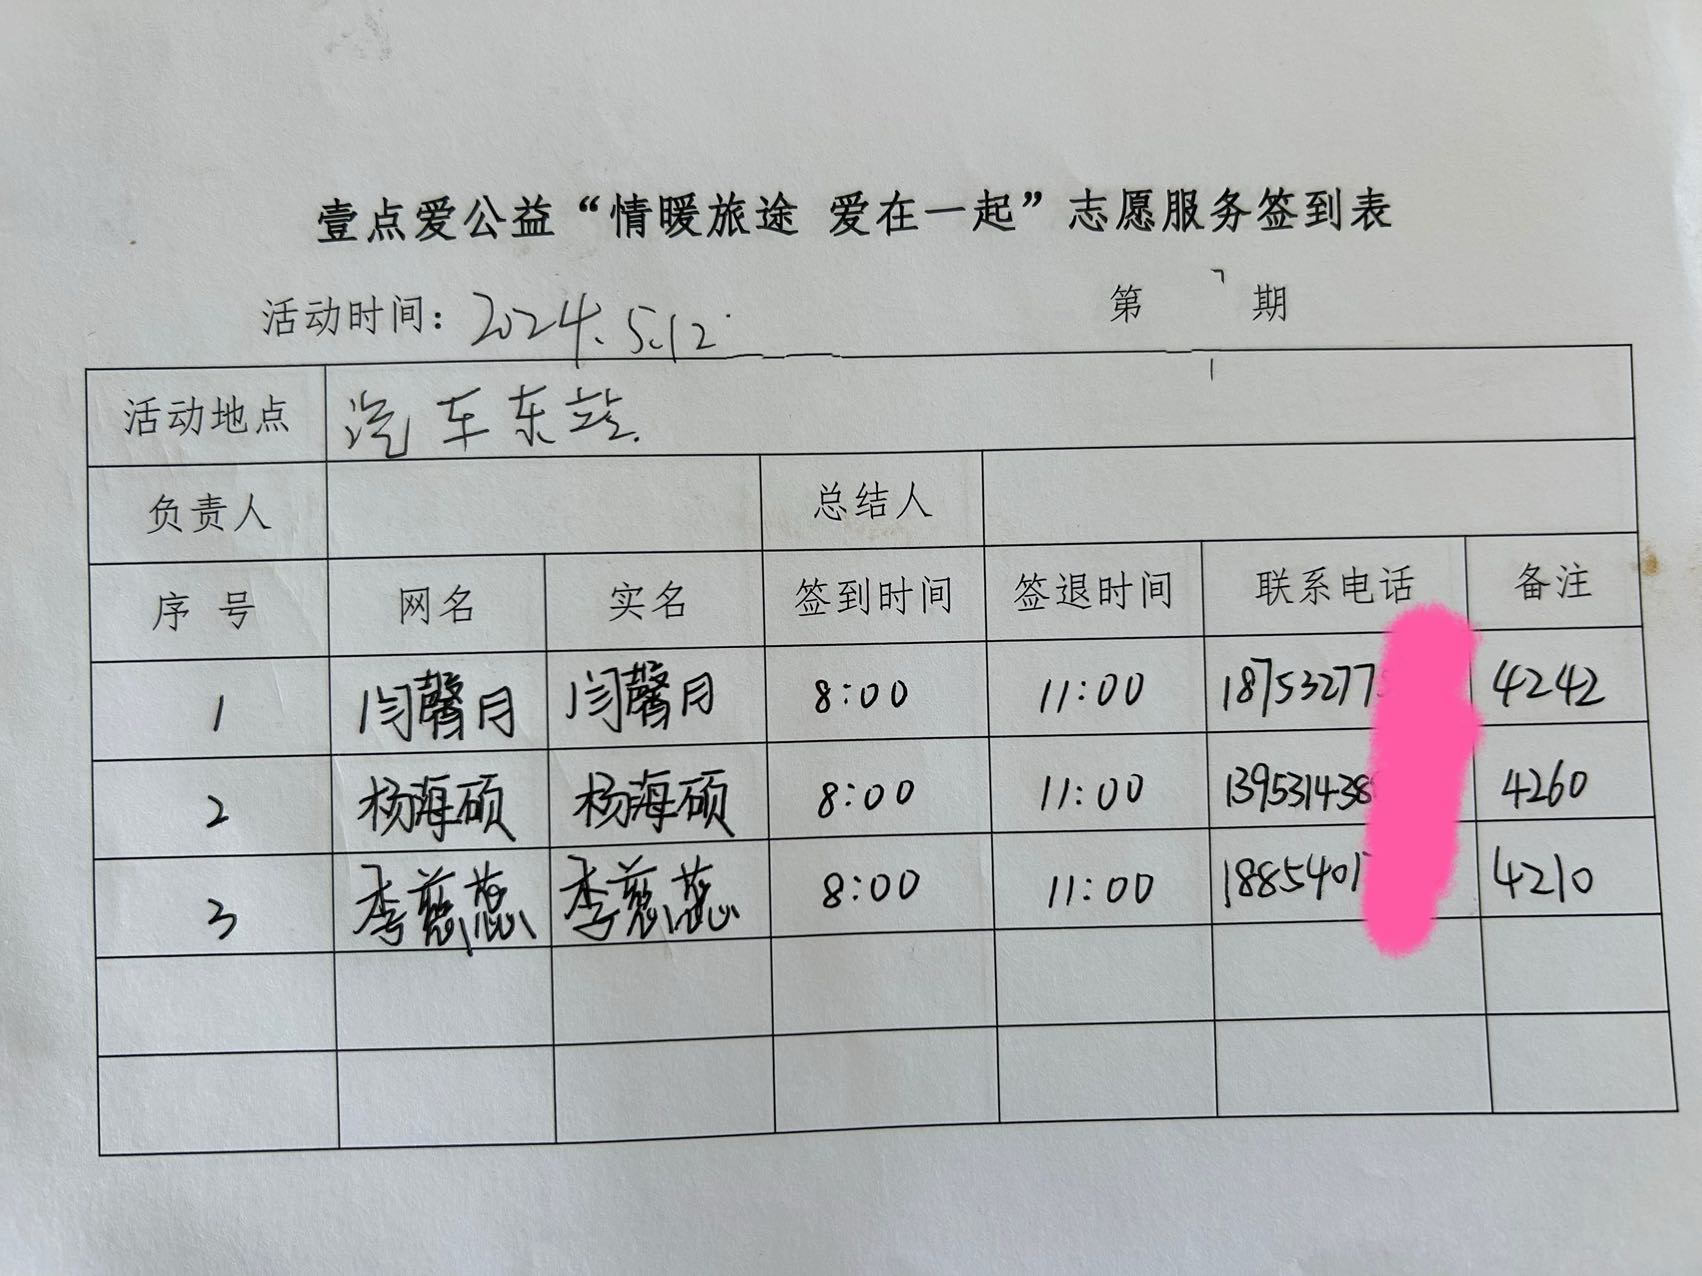 壹点爱公益“情暖旅途 爱在一起”志愿服务签到表
活动时间：2024.5.12 第 期
活动地点 汽车东站
负责人 总结人
序号 网名 实名 签到时间 签退时间 联系电话 备注
1 闫馨月 闫馨月 8:00 11:00 18753277 4242
2 杨海硕 杨海硕 8:00 11:00 139531438 4260
3 李慈蕊 李慈蕊 8:00 11:00 1885401 4210